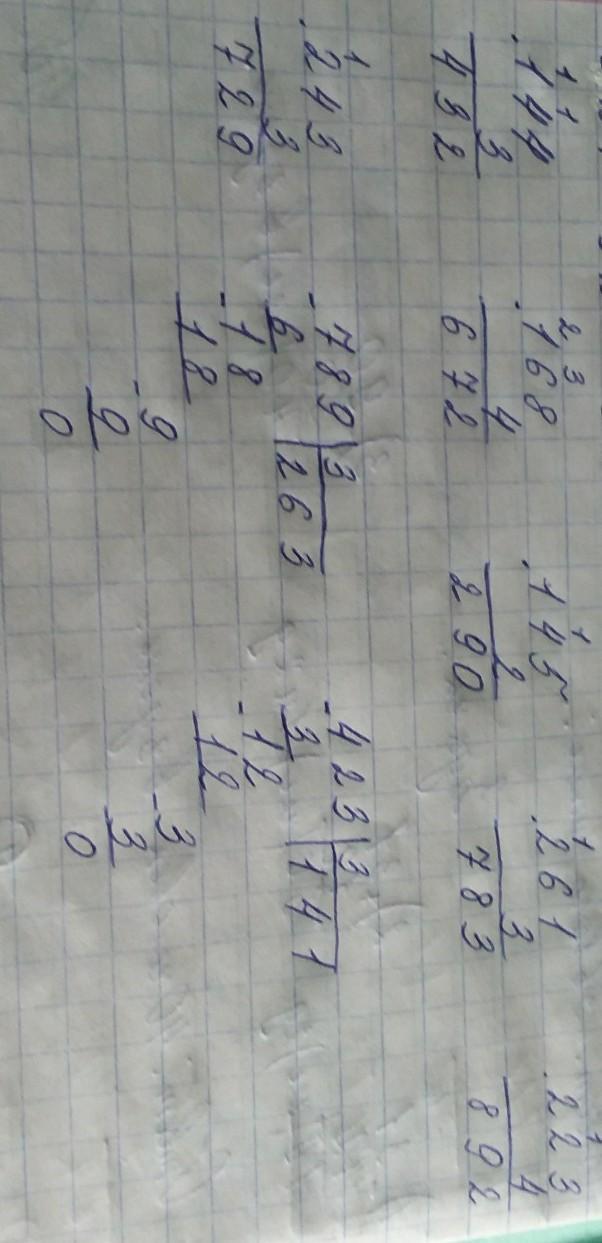 1 1
.144
3
432
2 3
.168
4
672
1
.145
2
290
1
.261
3
783
1
.223
4
892
1
.243
3
729
-789 3
6 263
-18
18
-9
9
0
-423 3
3 141
-12
12
-3
3
0